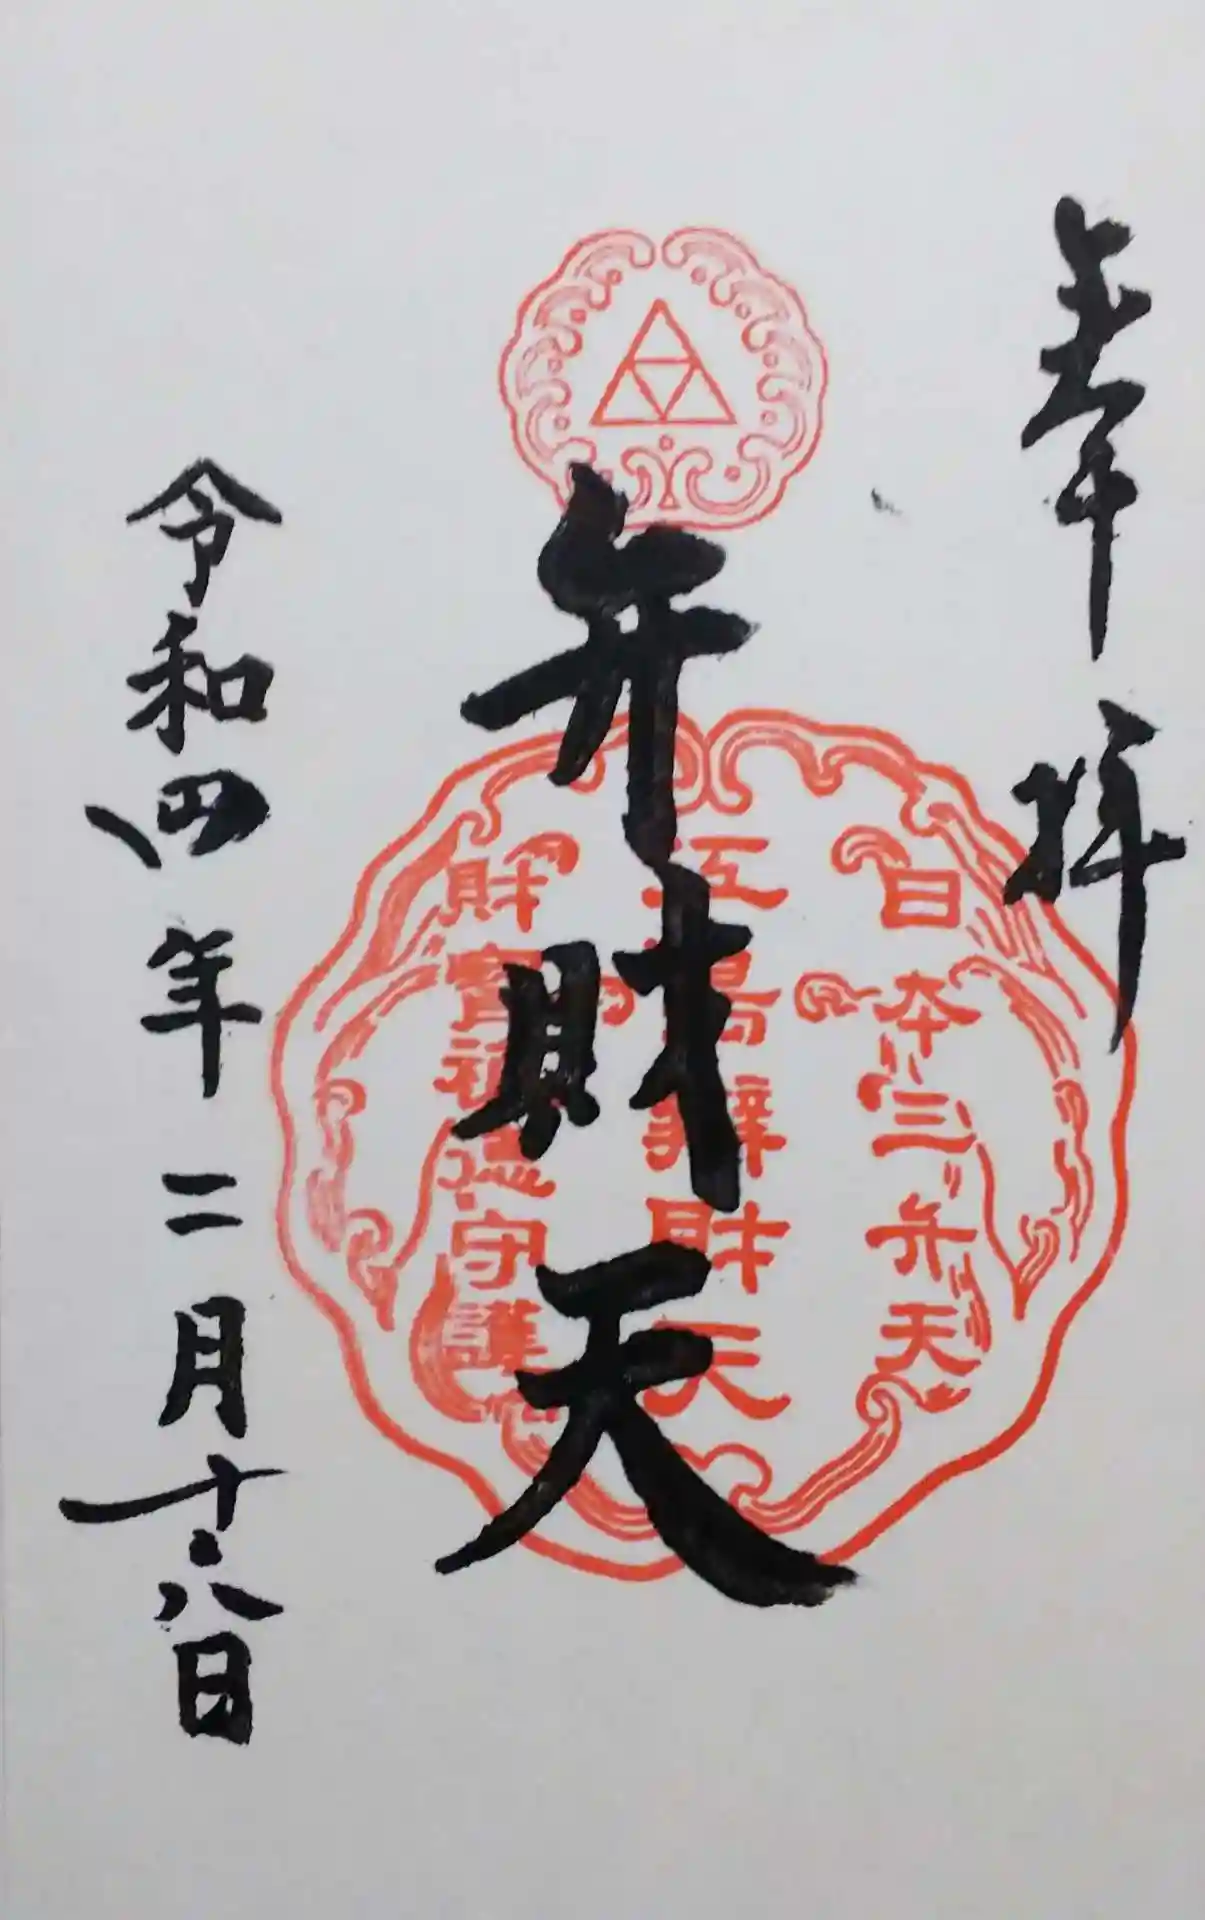 奉拝
日本三弁天
弁財天
江島辨財天
財寳福徳守護
令和四年二月十八日